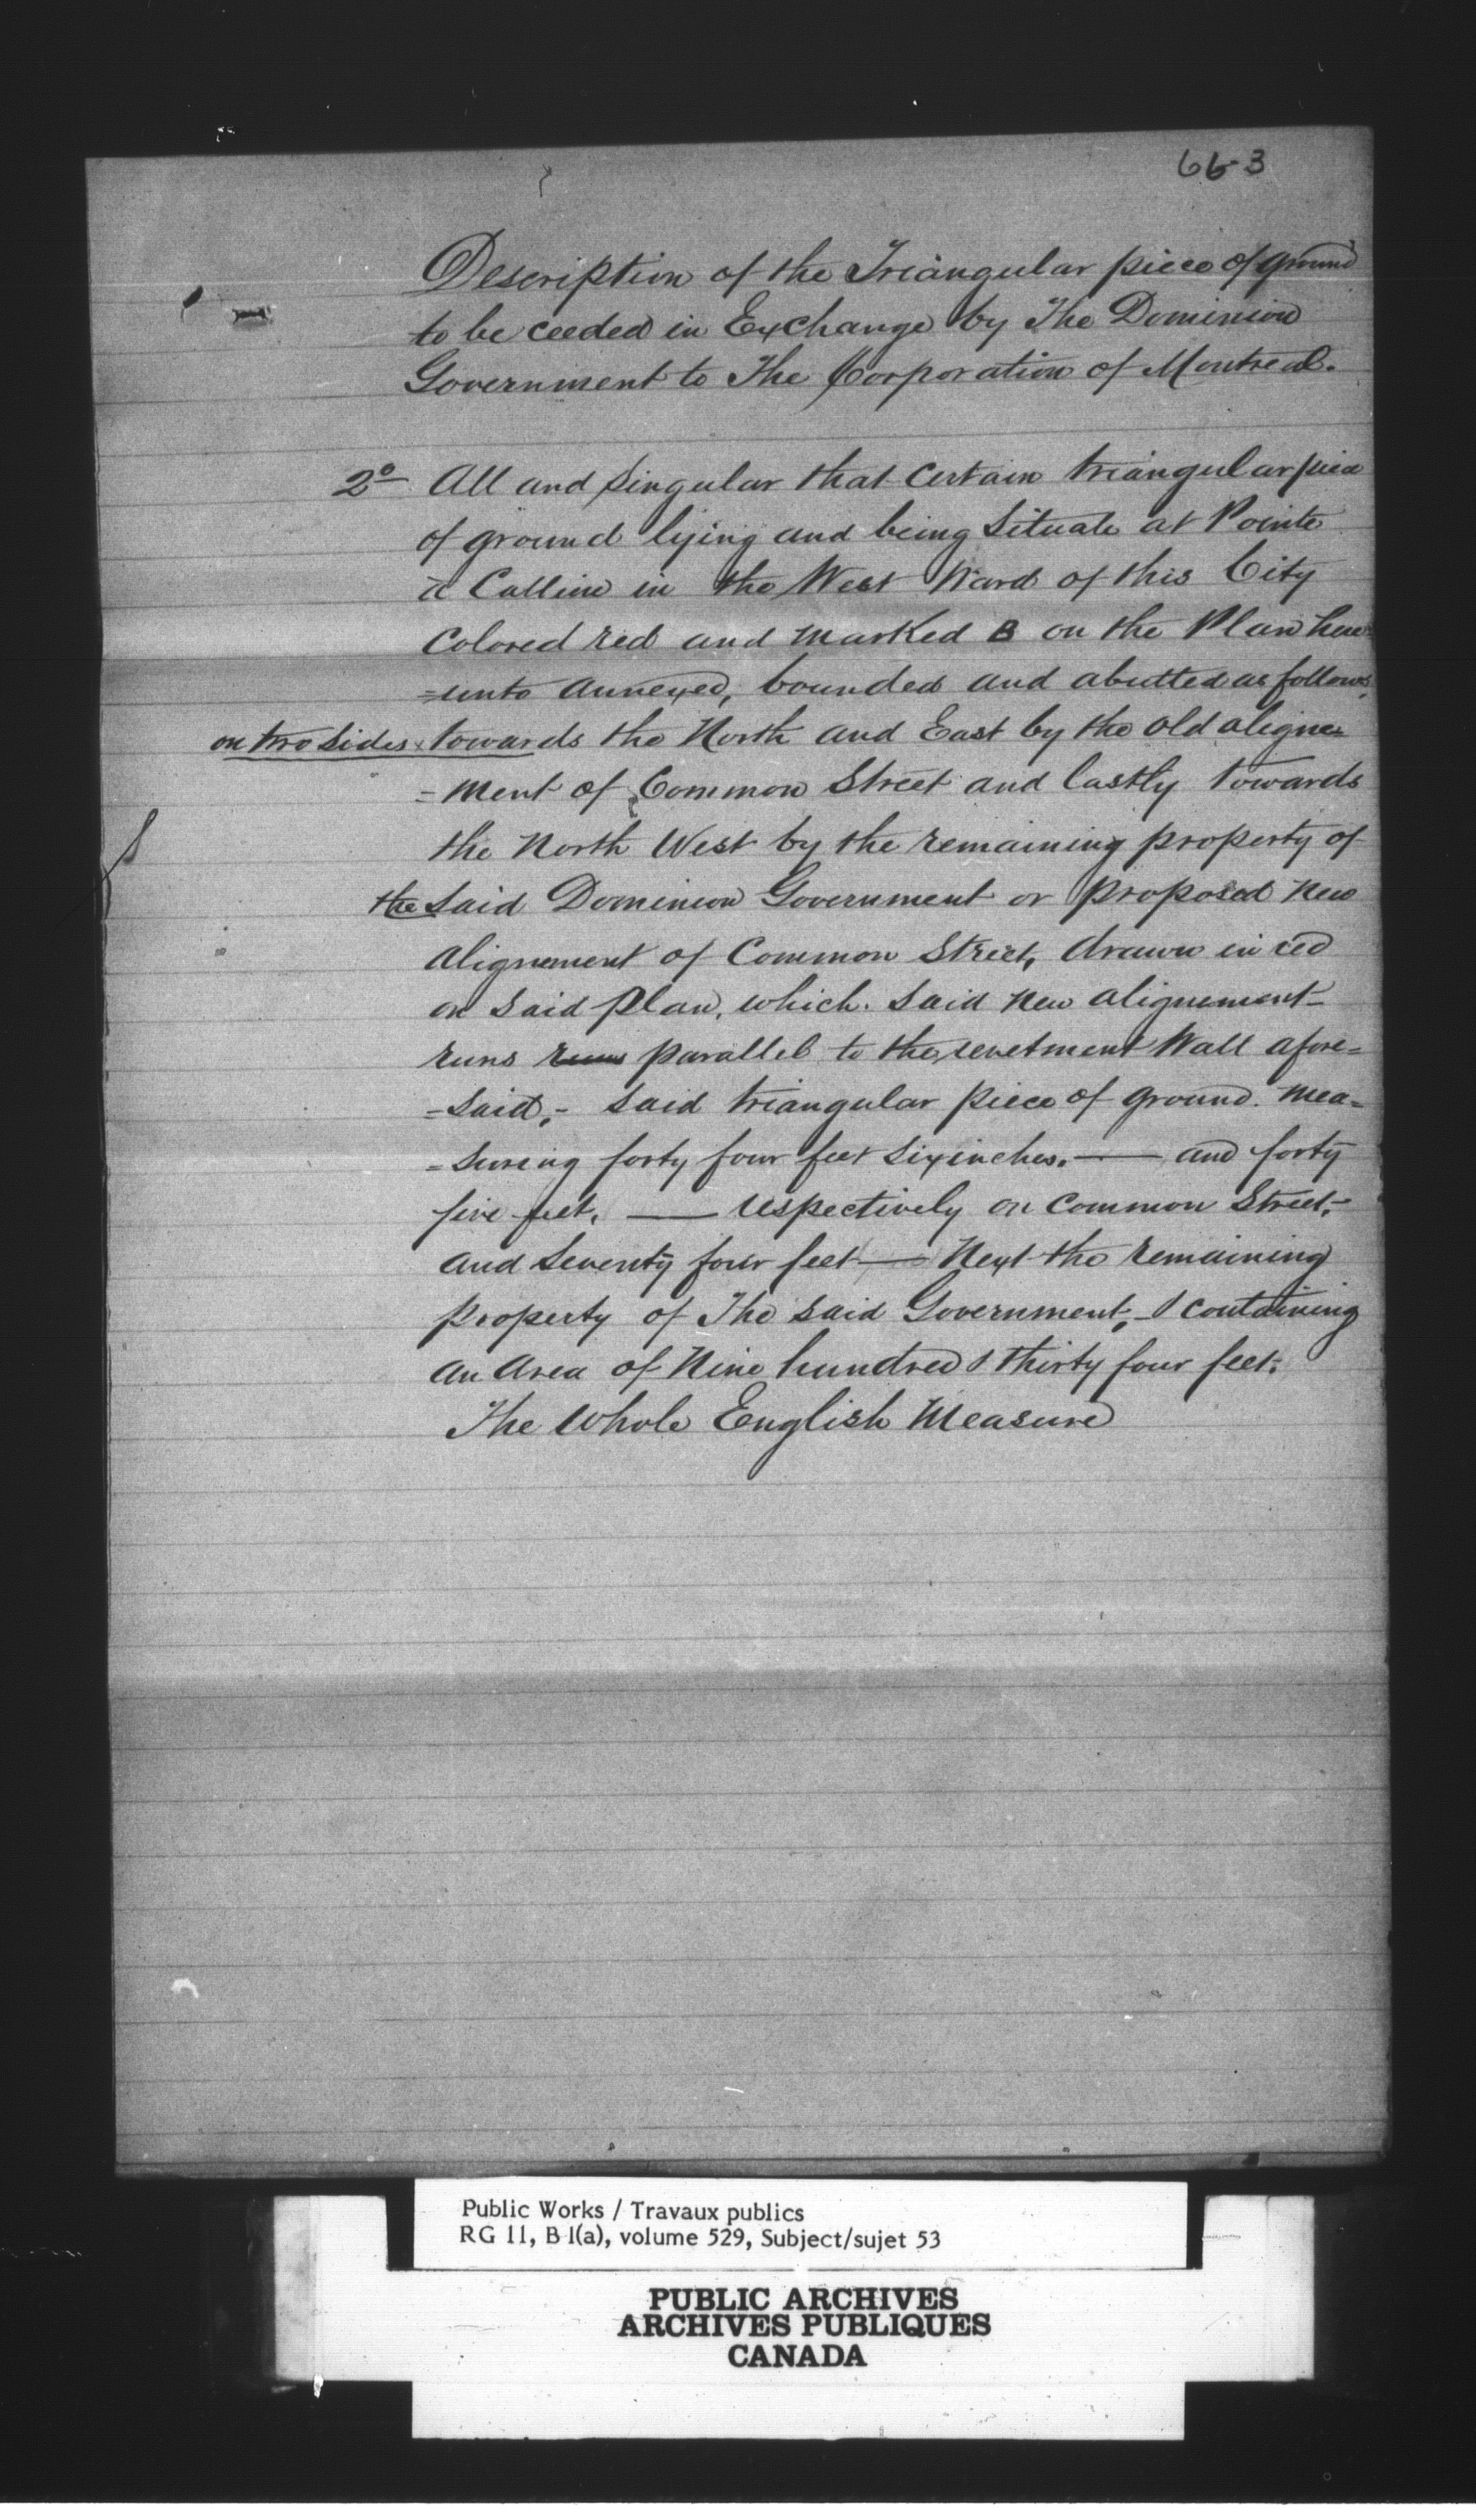 66-3
Description of the Triangular piece of ground
to be ceeded in Exchange by The Dominion
Government to The Corporation of Montreal.
2° All and Singular that certain triangular piece
of ground lying and being situate at Pointe
à Calliere in the West Ward of this City
colored red and marked B on the Plan here=
=unto annexed, bounded and abutted as follows,
on two sides towards the North and East by the old aligne=
=ment of Common Street and lastly towards
the North West by the remaining property of
the Said Dominion Government or proposed new
alignement of Common Street, drawn in red
on said plan, which said new alignement
runs runs parallel to the revetment Wall afore=
=said,- said triangular piece of ground mea=
=suring forty four feet six inches. — and forty
five feet, — respectively on Common Street,-
and Seventy four feet — Next the remaining
property of The said Government,- & containing
an area of Nine hundred & thirty four feet.
The whole English Measure
Public Works / Travaux publics
RG 11, B 1(a), volume 529, Subject/sujet 53
PUBLIC ARCHIVES
ARCHIVES PUBLIQUES
CANADA